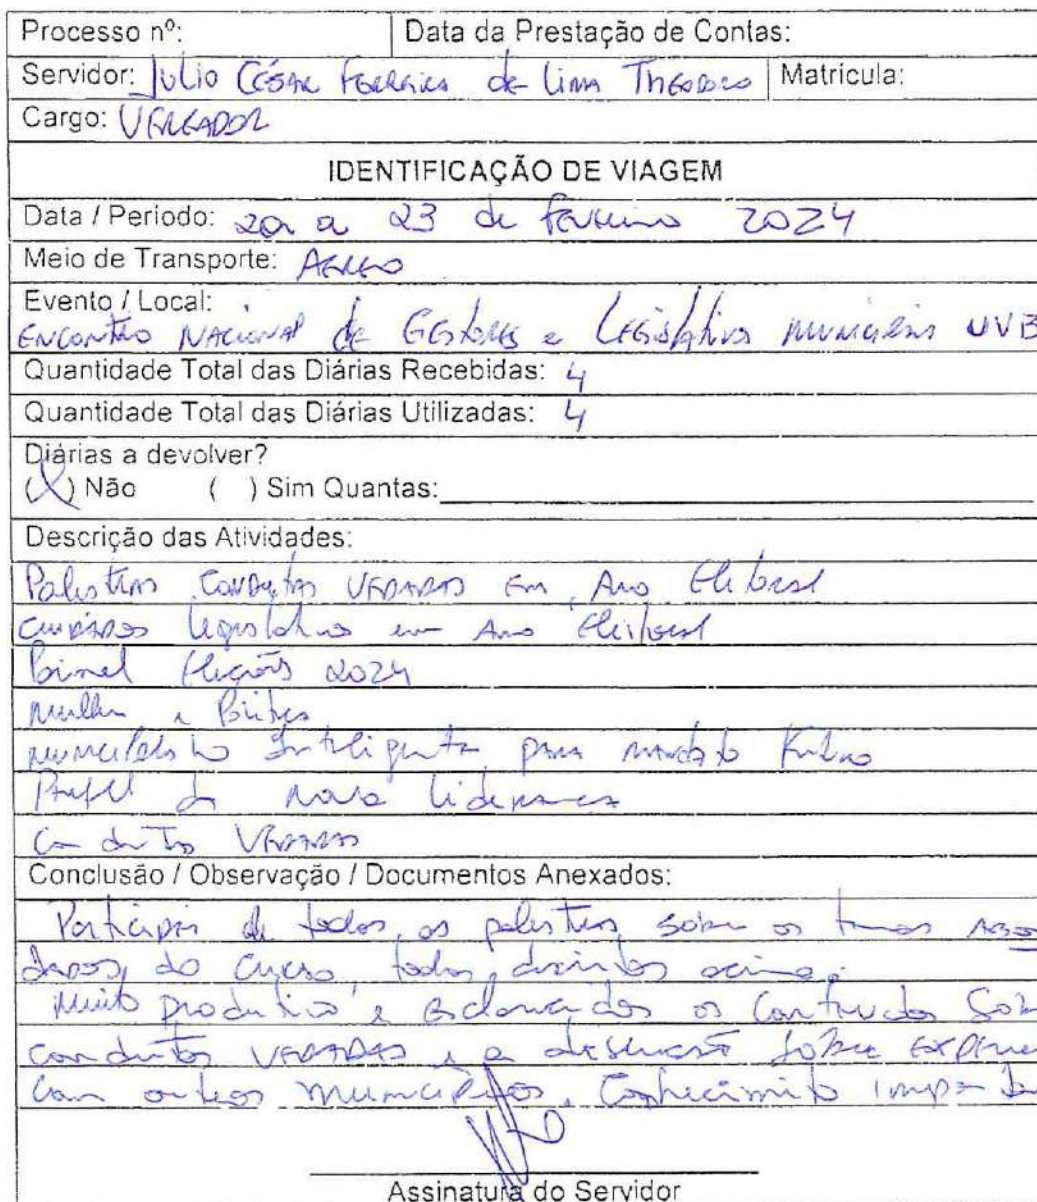 Processo nº: Data da Prestação de Contas:
Servidor: Julio César Ferreira de Lima Theodoro Matricula:
Cargo: VEREADOR
IDENTIFICAÇÃO DE VIAGEM
Data / Periodo: 20 a 23 de Fevereiro 2024
Meio de Transporte: Aereo
Evento / Local:
ENCONTRO NACIONAL de GEStores e Legislativos municipais UVB
Quantidade Total das Diárias Recebidas: 4
Quantidade Total das Diárias Utilizadas: 4
Diárias a devolver?
(X) Não ( ) Sim Quantas:
Descrição das Atividades:
Palestras Condutas VEDADAS Em Ano Eleitoral
cuidados legislativo em Ano Eleitoral
Painel Eleições 2024
mulher e Politica
Inteligente para mandato Futuro
Perfil da Nova liderança
Condutas VEDADAS
Conclusão / Observação / Documentos Anexados:
Participei de todas as palestras sobre os temas
do curso, todos acima.
Muito produtivo e os Conteudos Sob
condutas VEDADAS e a discussão sobre EXPERIE
com outros municípios. Conhecimento
Assinatura do Servidor